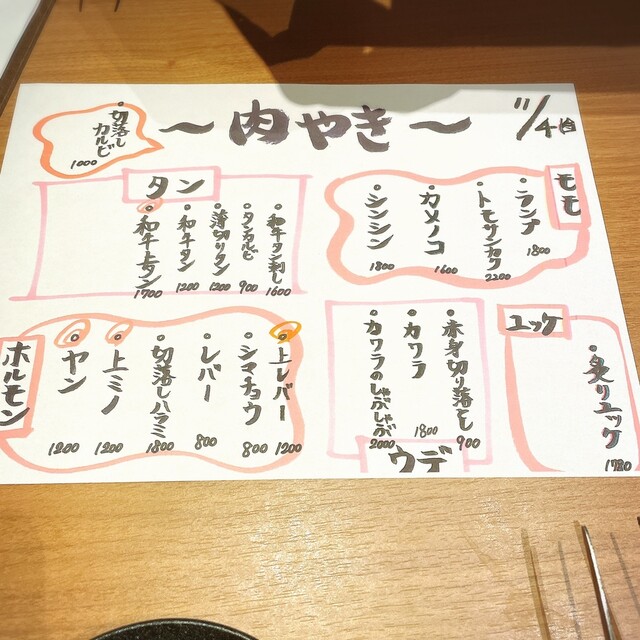 〜肉やき〜
11/4
切落し
カルビ
1000
モモ
ランプ
1800
トモサンカク
2200
カメノコ
1600
シンシン
1800
タン
和牛タン刺し
1600
タンカルビ
900
薄切りタン
1200
和牛タン
1200
和牛上タン
1700
ユッケ
炙りユッケ
1780
ウデ
赤身切り落とし
900
カワラ
1800
カワラのしゃぶしゃぶ
2000
ホルモン
上レバー
1200
シマチョウ
800
レバー
800
切落しハラミ
1800
上ミノ
1200
ヤン
1200